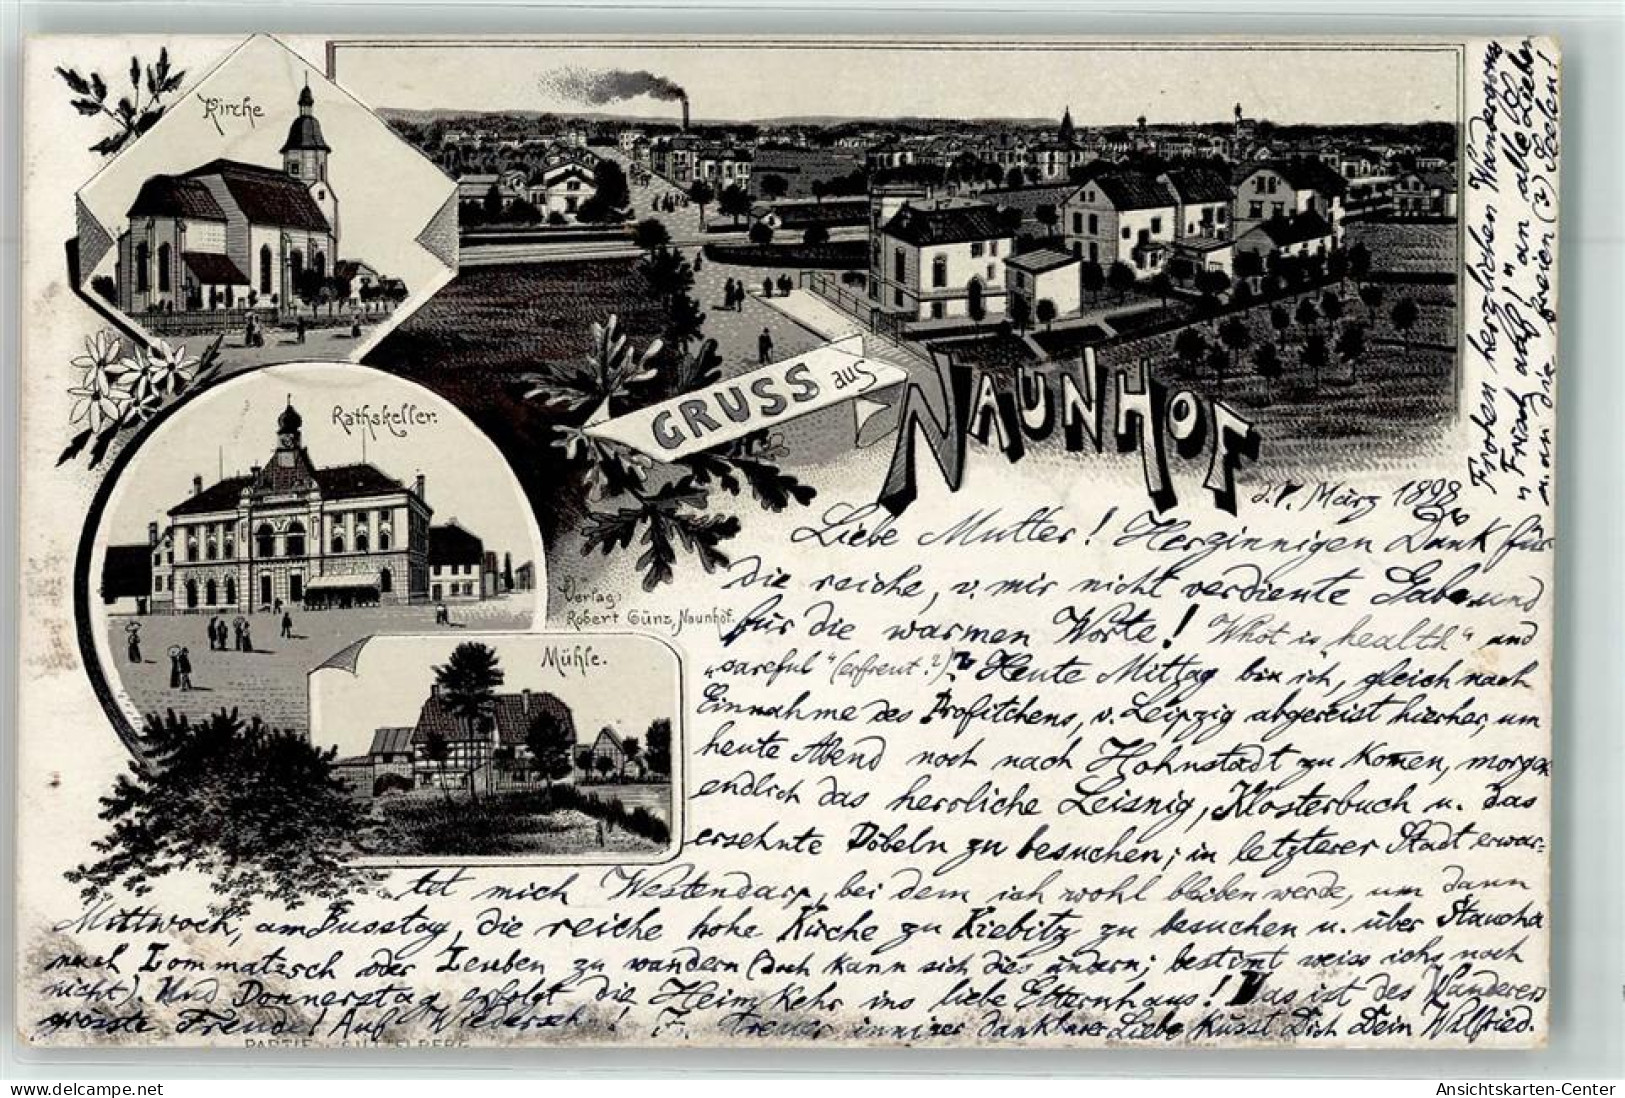 Kirche
Rathskeller.
Mühle.
GRUSS aus
NAUNHOF
Verlag:
Robert Günz, Naunhof.
März 1898
Liebe Mutter! Herzinnigen Dank für
die reiche, v. mir nicht verdiente Gabe und
für die warmen Worte! What is „health“ und
„careful“ (erfreut?)? Heute Mittag bin ich, gleich nach
Einnahme des Profitchens, v. Leipzig abgereist hierher, um
heute Abend noch nach Hohnstädt zu komen, morgen
endlich das herrliche Leisnig, Klosterbuch u. das
ersehnte Döbeln zu besuchen; in letzterer Stadt erwar-
tet mich Westendarp, bei dem ich wohl bleiben werde, um dann
Mittwoch, am Busstag, die reiche hohe Kirche zu Kiebitz zu besuchen u. über Staucha
nach Lommatzsch oder Leuben zu wandern (doch kann sich dies ändern; bestimt weiss ichs noch
nicht). Und Donnerstag erfolgt die Heimkehr ins liebe Elternhaus! Das ist des Wanderers
grösste Freude! Auf Wiederseh.! In treuer inniger dankbarer Liebe küsst Dich Dein Walfried.
Frohen herzlichen Wandergruss
„Frisch auf!“ an alle Lieben
u. an die freien (3) Seelen!
PARTIE
Ansichtskarten-Center
www.delcampe.net